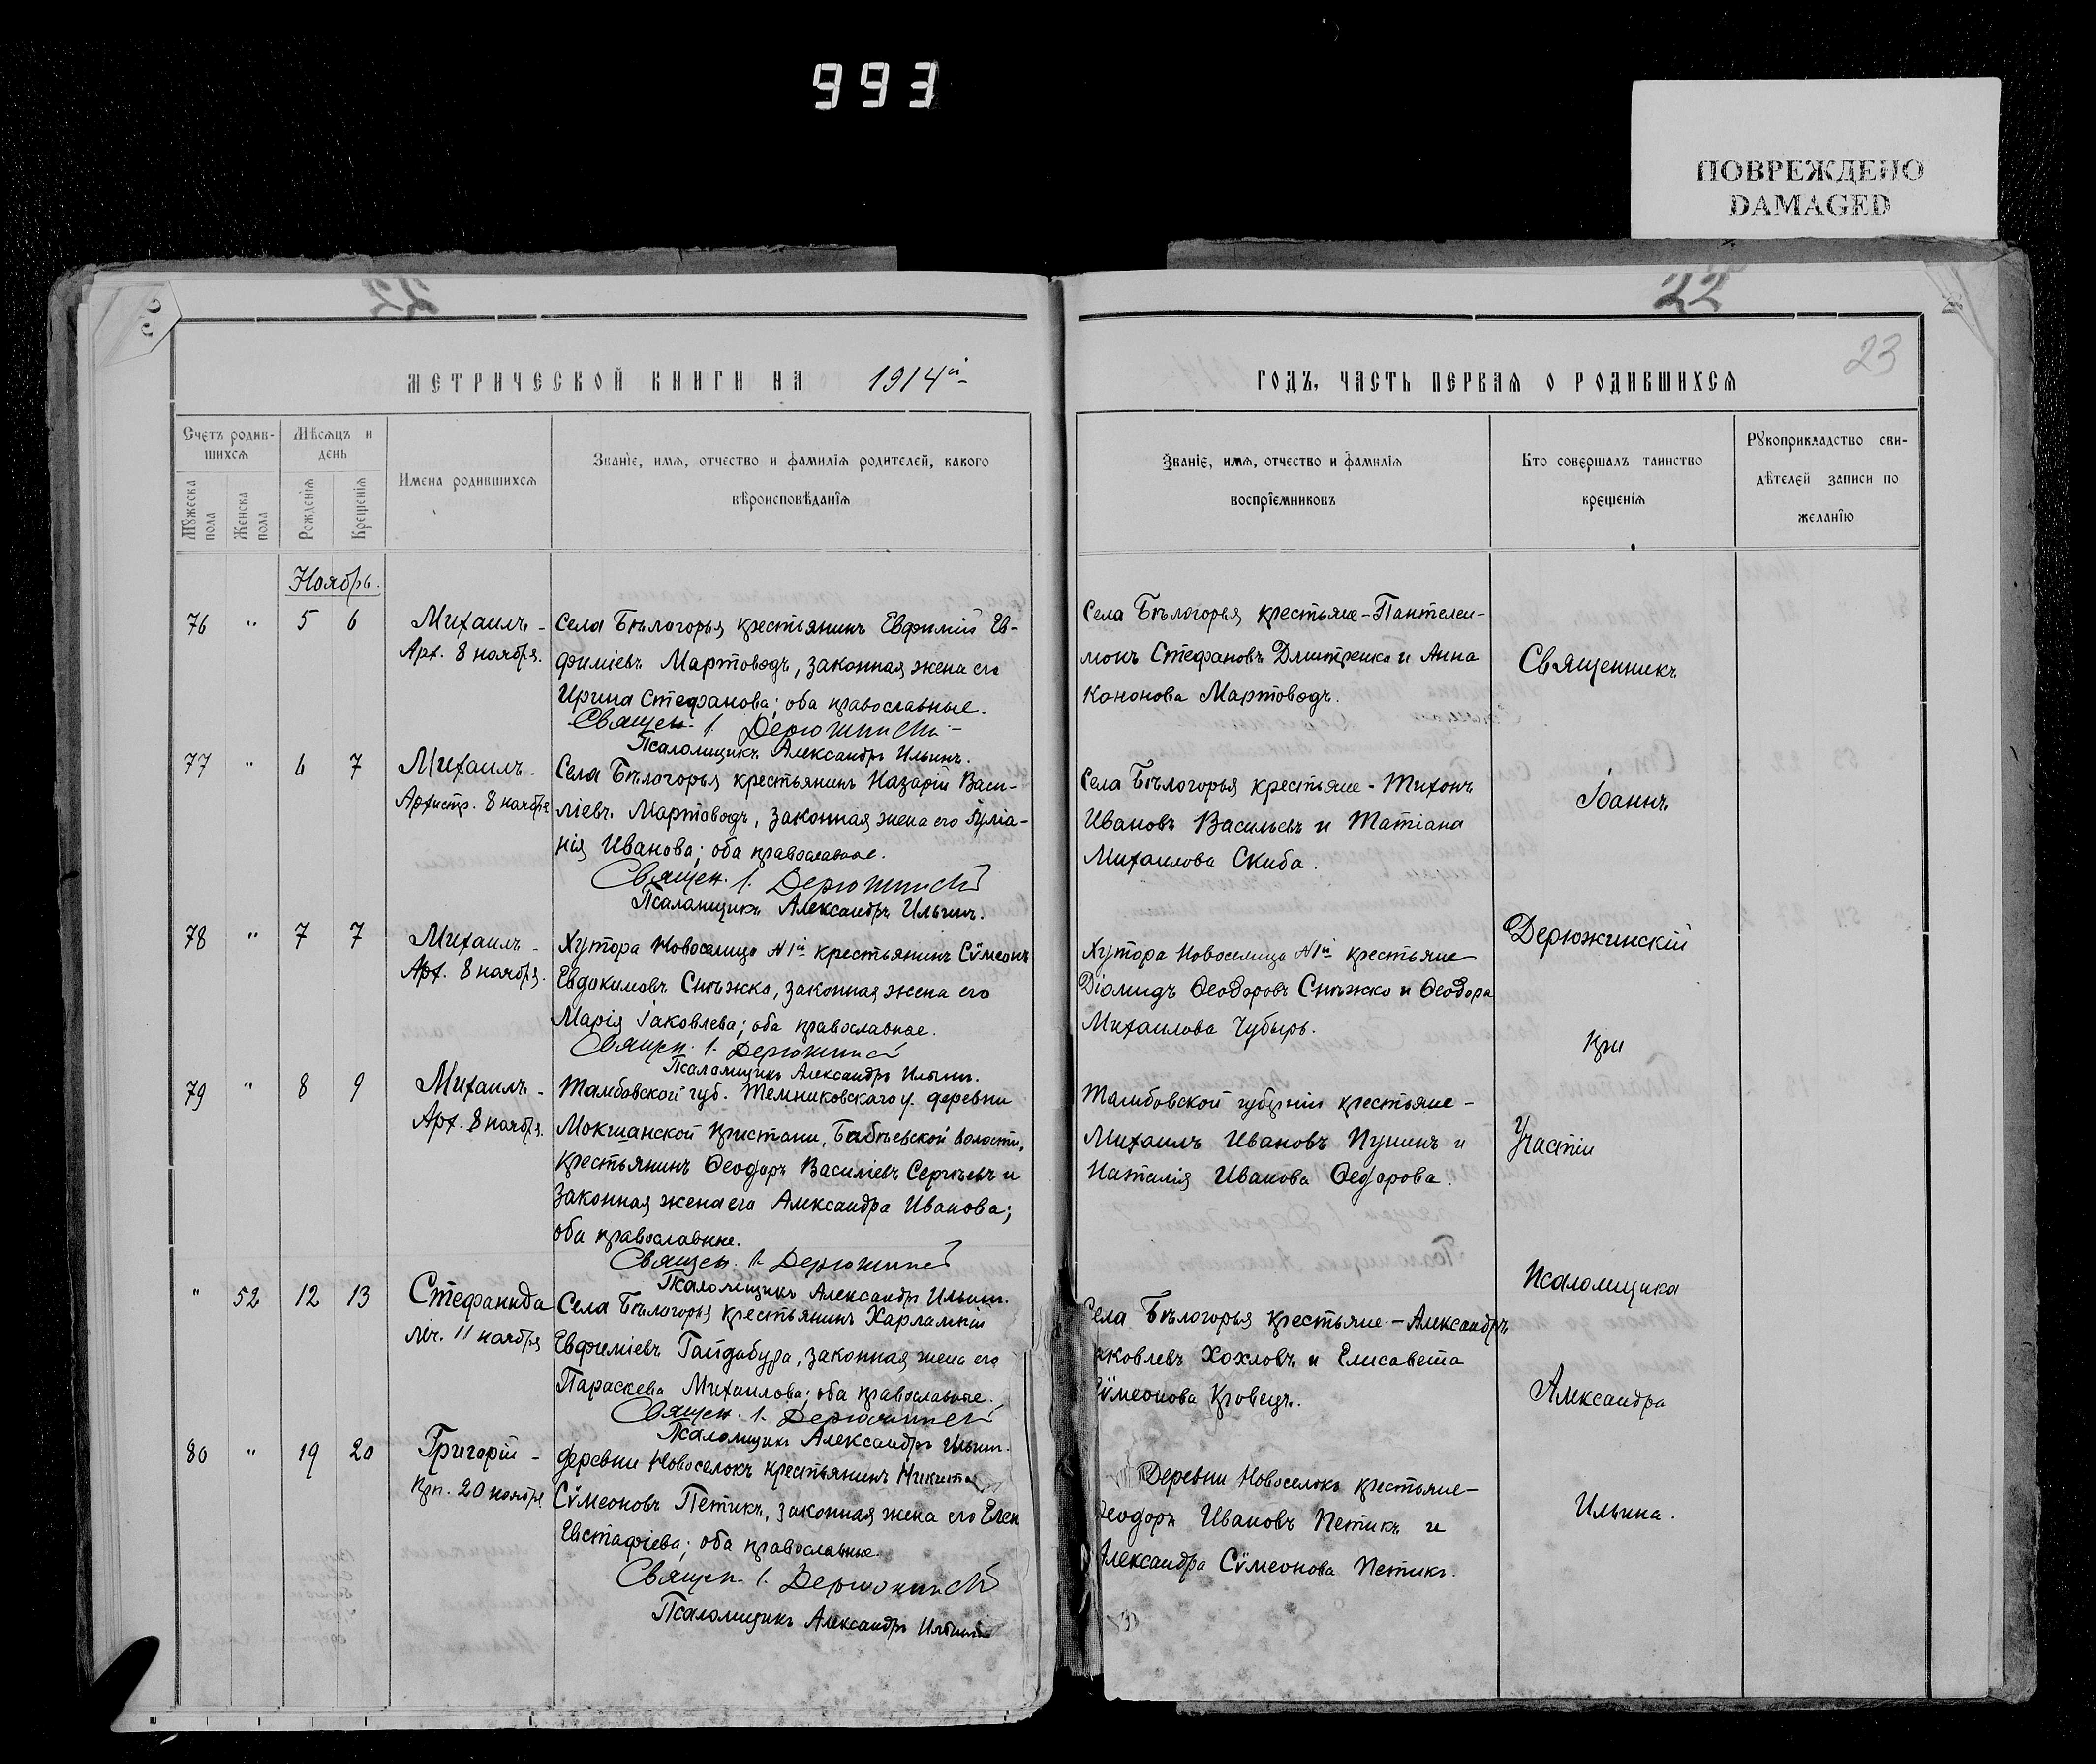 993
ПОВРЕЖДЕНО
DAMAGED
22
23
МЕТРИЧЕСКОЙ КНИГИ НА 1914й
Счетъ родив-
шихся
Мѣсяцъ и
день
Мужеска
пола
Женска
пола
Рожденія
Крещенія
Имена родившихся
Званіе, имя, отчество и фамилія родителей, какого
вѣроисповѣданія
Ноябрь.
76 " 5 6
Михаилъ -
Арх. 8 ноября.
Села Бѣлогорья крестьянинъ Евфимій Ев-
фиміевъ Мартоводъ, законная жена его
Ирина Стефанова; оба православные.
Священ. І. Дерюжинскій
Псаломщикъ Александръ Ильинъ.
77 " 6 7
Михаилъ -
Архистр. 8 ноября
Села Бѣлогорья крестьянинъ Назарій Васи-
ліевъ Мартоводъ, законная жена его Іуліа-
нія Иванова; оба православные.
Священ. І. Дерюжинскій
Псаломщикъ Александръ Ильинъ.
78 " 7 7
Михаилъ -
Арх. 8 ноября.
Хутора Новоселица №1й крестьянинъ Сѵмеонъ
Евдокимовъ Снѣжко, законная жена его
Марія Іаковлева; оба православные.
Священ. І. Дерюжинскій
Псаломщикъ Александръ Ильинъ.
79 " 8 9
Михаилъ -
Арх. 8 ноября.
Тамбовской губ. Темниковскаго у. деревни
Мокшанской пристани, Бабѣевской волости,
крестьянинъ Ѳеодоръ Василіевъ Сергѣевъ и
законная жена его Александра Иванова;
оба православные.
Священ. І. Дерюжинскій
Псаломщикъ Александръ Ильинъ.
" 52 12 13
Стефанида
мч. 11 ноября
Села Бѣлогорья крестьянинъ Харлампій
Евфиміевъ Гайдабура, законная жена его
Параскева Михаилова; оба православные.
Священ. І. Дерюжинскій
Псаломщикъ Александръ Ильинъ.
80 " 19 20
Григорій -
Прп. 20 ноября
деревни Новоселокъ крестьянинъ Никита
Сѵмеоновъ Петикъ, законная жена его Елен
Евстафіева; оба православные.
Священ. І. Дерюжинскій
Псаломщикъ Александръ Ильинъ
ГОДЪ, ЧАСТЬ ПЕРВАЯ О РОДИВШИХСЯ
Званіе, имя, отчество и фамилія
воспріемниковъ
Кто совершалъ таинство
крещенія
Рукоприкладство сви-
дѣтелей записи по
желанію
Села Бѣлогорья крестьяне - Пантелеи-
монъ Стефановъ Дмитренко и Анна
Кононова Мартоводъ.
Села Бѣлогорья крестьяне - Тихонъ
Ивановъ Васильевъ и Татіана
Михаилова Скиба.
Хутора Новоселица №1й крестьяне
Діомидъ Ѳеодоровъ Снѣжко и Ѳеодора
Михаилова Чубырь.
Тамбовской губерніи крестьяне -
Михаилъ Ивановъ Пушинъ и
Наталія Иванова Ѳедорова.
Села Бѣлогорья крестьяне - Александръ
аковлевъ Хохловъ и Елисавета
Сѵмеонова Кравецъ.
Деревни Новоселокъ крестьяне -
Ѳеодоръ Ивановъ Петикъ и
Александра Сѵмеонова Петикъ.
Священникъ
Іоаннъ
Дерюжинскій
при
Участіи
Псаломщика
Александра
Ильина.